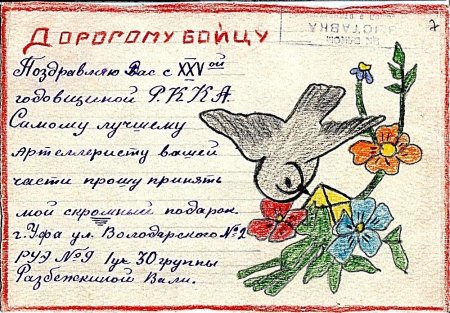 7
ВЫСТАВКА
ДОРОГОМУ БОЙЦУ
Поздравляю Вас с XXVой
годовщиной Р.К.К.А.
Самому лучшему
Артеллеристу вашей
части прошу принять
мой скромный подарок.
г. Уфа ул. Володарского №2
РУЭ №9 1ук 30 группы
Разбежкиной Вали.